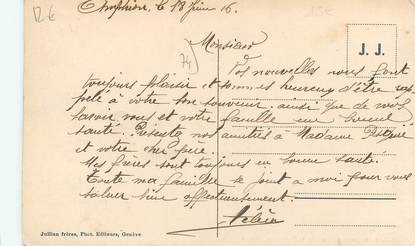 12€
15€
Amphion, le 18 Juin 16.
74
J. J.
Monsieur
Vos nouvelles nous font
toujours plaisir et sommes heureux d'être rap
pelé à votre bon souvenir. ainsi que de vous
savoir vous et votre famille en bonne
santé. Présentez nos amitiés à Madame
et votre cher père.
Mes frères sont toujours en bonne santé.
Toute ma famille se joint a moi pour vous
saluer bien affectueusement.
Jullien frères, Phot. Editeurs, Genève